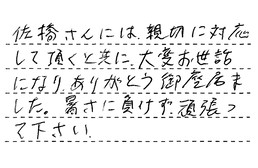 佐橋さんには、親切に対応
して頂くと共に、大変お世話
になり、ありがとう御座居ま
した。暑さに負けず頑張っ
て下さい。